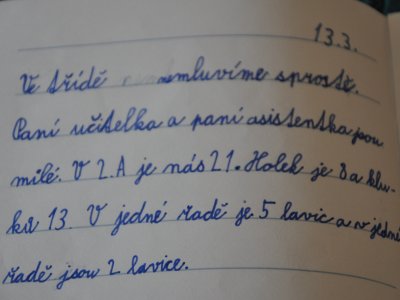 13.3.
Ve třídě nemluvíme sprostě.
Paní učitelka a paní asistentka jsou
milé. V 2.A je nás 21. Holek je 8 a klu-
ků 13. V jedné řadě je 5 lavic a v jedné
řadě jsou 2 lavice.